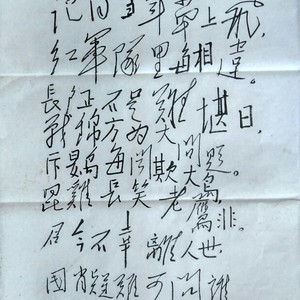 記得當年草上飛，
紅軍隊里每相違。
長征不是難堪日，
戰錦方為大問題。
斥鷃每聞欺大鳥，
昆雞長笑老鷹非。
君今不幸離人世，
國有疑難可問誰